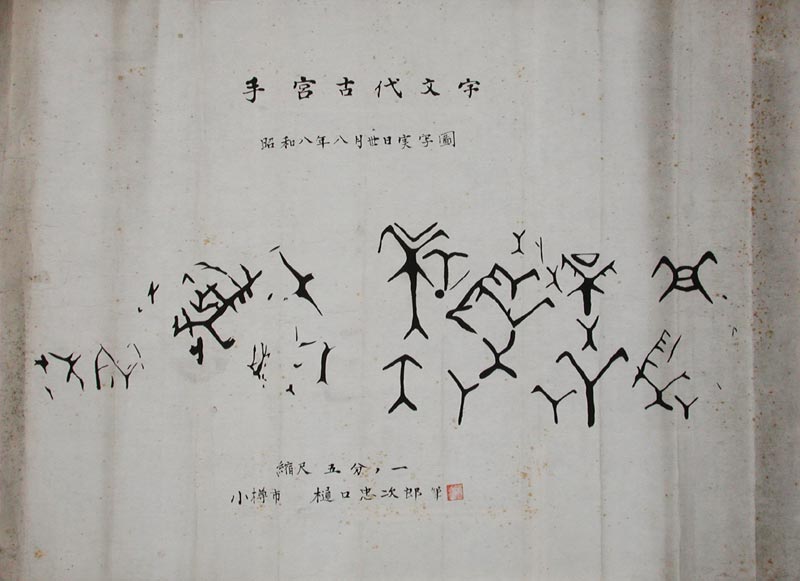 手宮古代文字
昭和八年八月卅日実写圖
縮尺 五分ノ一
小樽市 樋口忠次郎 筆